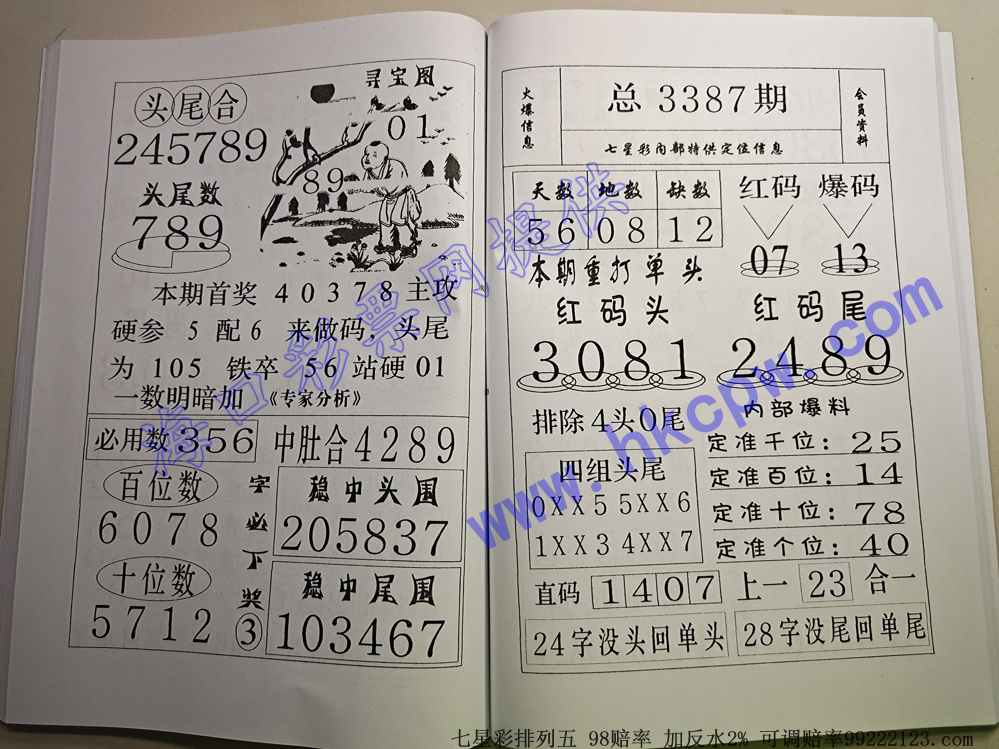 头尾合
245789
寻宝图
01
89
头尾数
789
本期首奖 40378 主攻
硬参 5 配6 来做码,头尾
为 105 铁卒 56 站硬 01
一数明暗加 《专家分析》
必用数 356
中肚合4289
百位数
6078
十位数
5712
字必下奖③
稳中头围
205837
稳中尾围
103467
火爆信息
总 3387 期
七星彩内部特供定位信息
会员资料
天数 地数 缺数
56 08 12
红码 爆码
07 13
本期重打单头
红码头
3081
红码尾
2489
排除4头0尾
四组头尾
0XX5 5XX6
1XX3 4XX7
内部爆料
定准千位:25
定准百位:14
定准十位:78
定准个位:40
直码 1407 上一 23 合一
24字没头回单头
28字没尾回单尾
海口彩票网提供
www.hkcpw.com
七星彩排列五 98赔率 加反水2% 可调赔率99222123.com